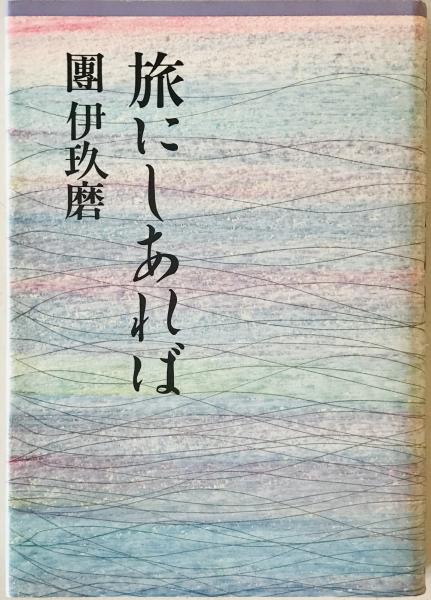 旅にしあれば
團 伊玖磨